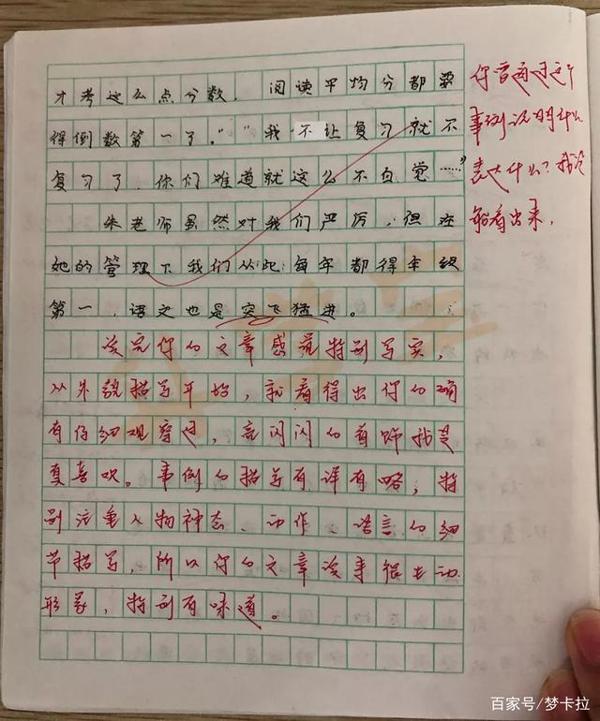 才考这么点分数，阅读平均分都要
得倒数第一了。”“我不让复习就不
复习了，你们难道就这么不自觉……”
朱老师虽然对我们严厉，但在
她的管理下我们从此每年都得年级
第一，语文也是突飞猛进。
读完你的文章感觉特别写实，
从外貌描写开始，就看得出你的确
有仔细观察过，亮闪闪的首饰我是
更喜欢。事例的描写有详有略，特
别注重人物神态、动作、语言的细
节描写，所以你的文章读来很生动
形象，特别有味道。
你看通过这个
事例说明什么
表达什么？我没
能看出来。
百家号/梦卡拉